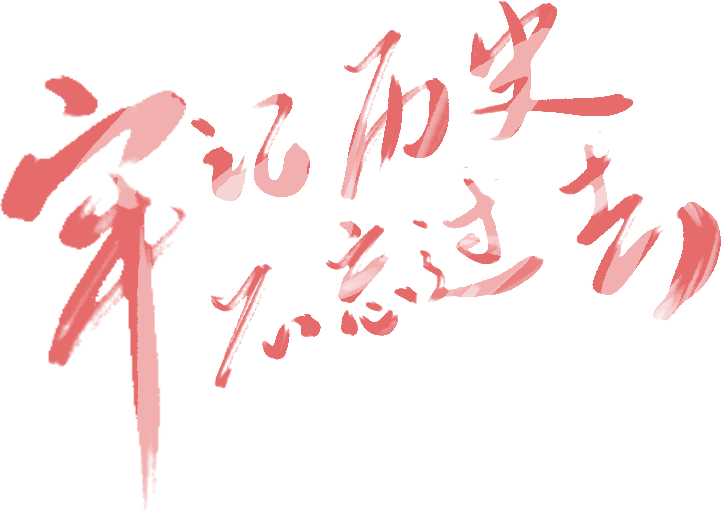 牢记历史
不忘过去